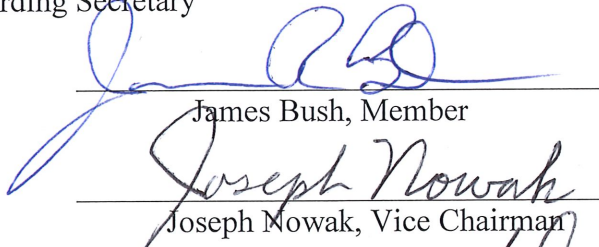 rding Secretary
James Bush, Member
Joseph Nowak
Joseph Nowak, Vice Chairman